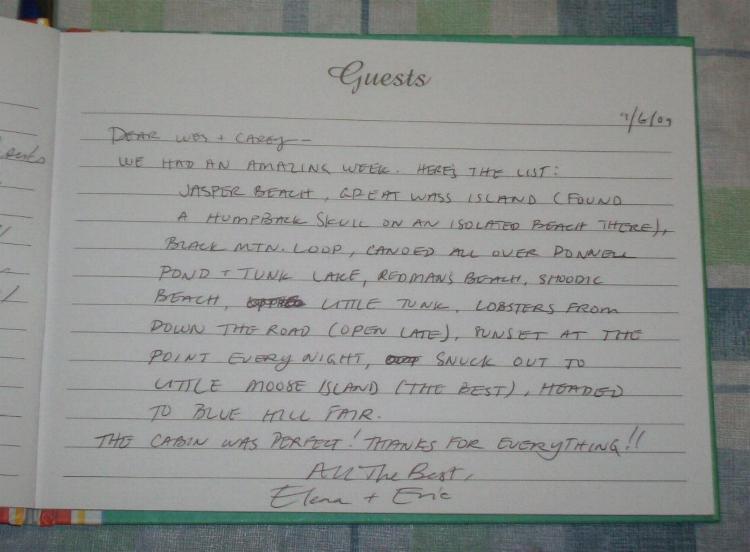 Guests
9/6/09
DEAR WES + CAREY—
WE HAD AN AMAZING WEEK. HERE'S THE LIST:
JASPER BEACH, GREAT WASS ISLAND (FOUND
A HUMPBACK SKULL ON AN ISOLATED BEACH THERE),
BLACK MTN. LOOP, CANOED ALL OVER DONNELL
POND + TUNK LAKE, REDMANS BEACH, SHOODIC
BEACH, LITTLE TUNK, LOBSTERS FROM
DOWN THE ROAD (OPEN LATE), SUNSET AT THE
POINT EVERY NIGHT, SNUCK OUT TO
LITTLE MOOSE ISLAND (THE BEST), HEADED
TO BLUE HILL FAIR.
THE CABIN WAS PERFECT! THANKS FOR EVERYTHING!!
All The Best,
Elena + Eric